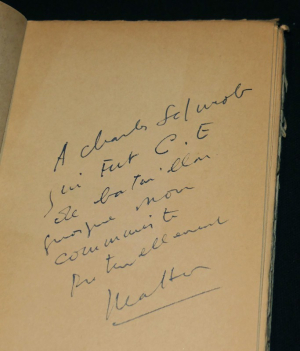 A Charles Schwob
qui fut C. E
de bataillon
quoique non
communiste
Fraternellement